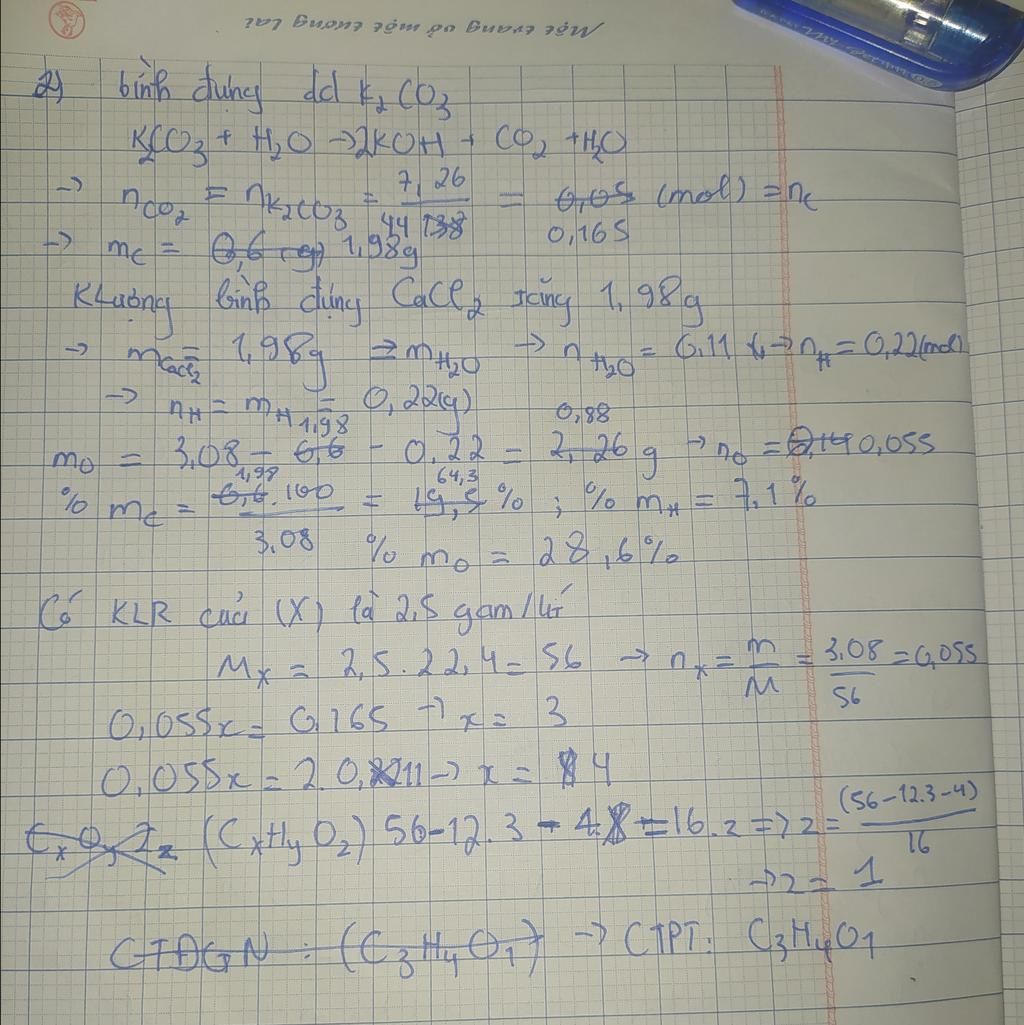 Một trang vở một tương lai
2) bình đựng dd K2CO3
K2CO3 + H2O → 2KOH + CO2 + H2O
→ nCO2 = nK2CO3 = 7,26 / 44 138 = 0,05 (mol) = nC
0,165
→ mC = 0,6 (g) 1,98g
KLượng bình đựng CaCl2 tăng 1,98g
→ mCaCl2 = 1,98g = mH2O → nH2O = 0,11 → nH = 0,22(mol)
→ nH = mH = 0,22(g)
1,98 0,88
mO = 3,08 - 0,6 - 0,22 = 2,26 g → nO = 0,14 0,055
1,98 64,3
% mC = 0,6.100 / 3,08 = 19,5 % ; % mH = 7,1%
% mO = 28,6%
Có KLR của (X) là 2,5 gam/lít
MX = 2,5.22,4 = 56 → nX = m / M = 3,08 / 56 = 0,055
0,055x = 0,165 → x = 3
0,055x = 2.0,11 → x = 4
(CxHyOz) 56-12.3 - 4 = 16.z => z = (56-12.3-4) / 16
→ z = 1
CTĐGN : (C3H4O1) → CTPT: C3H4O1